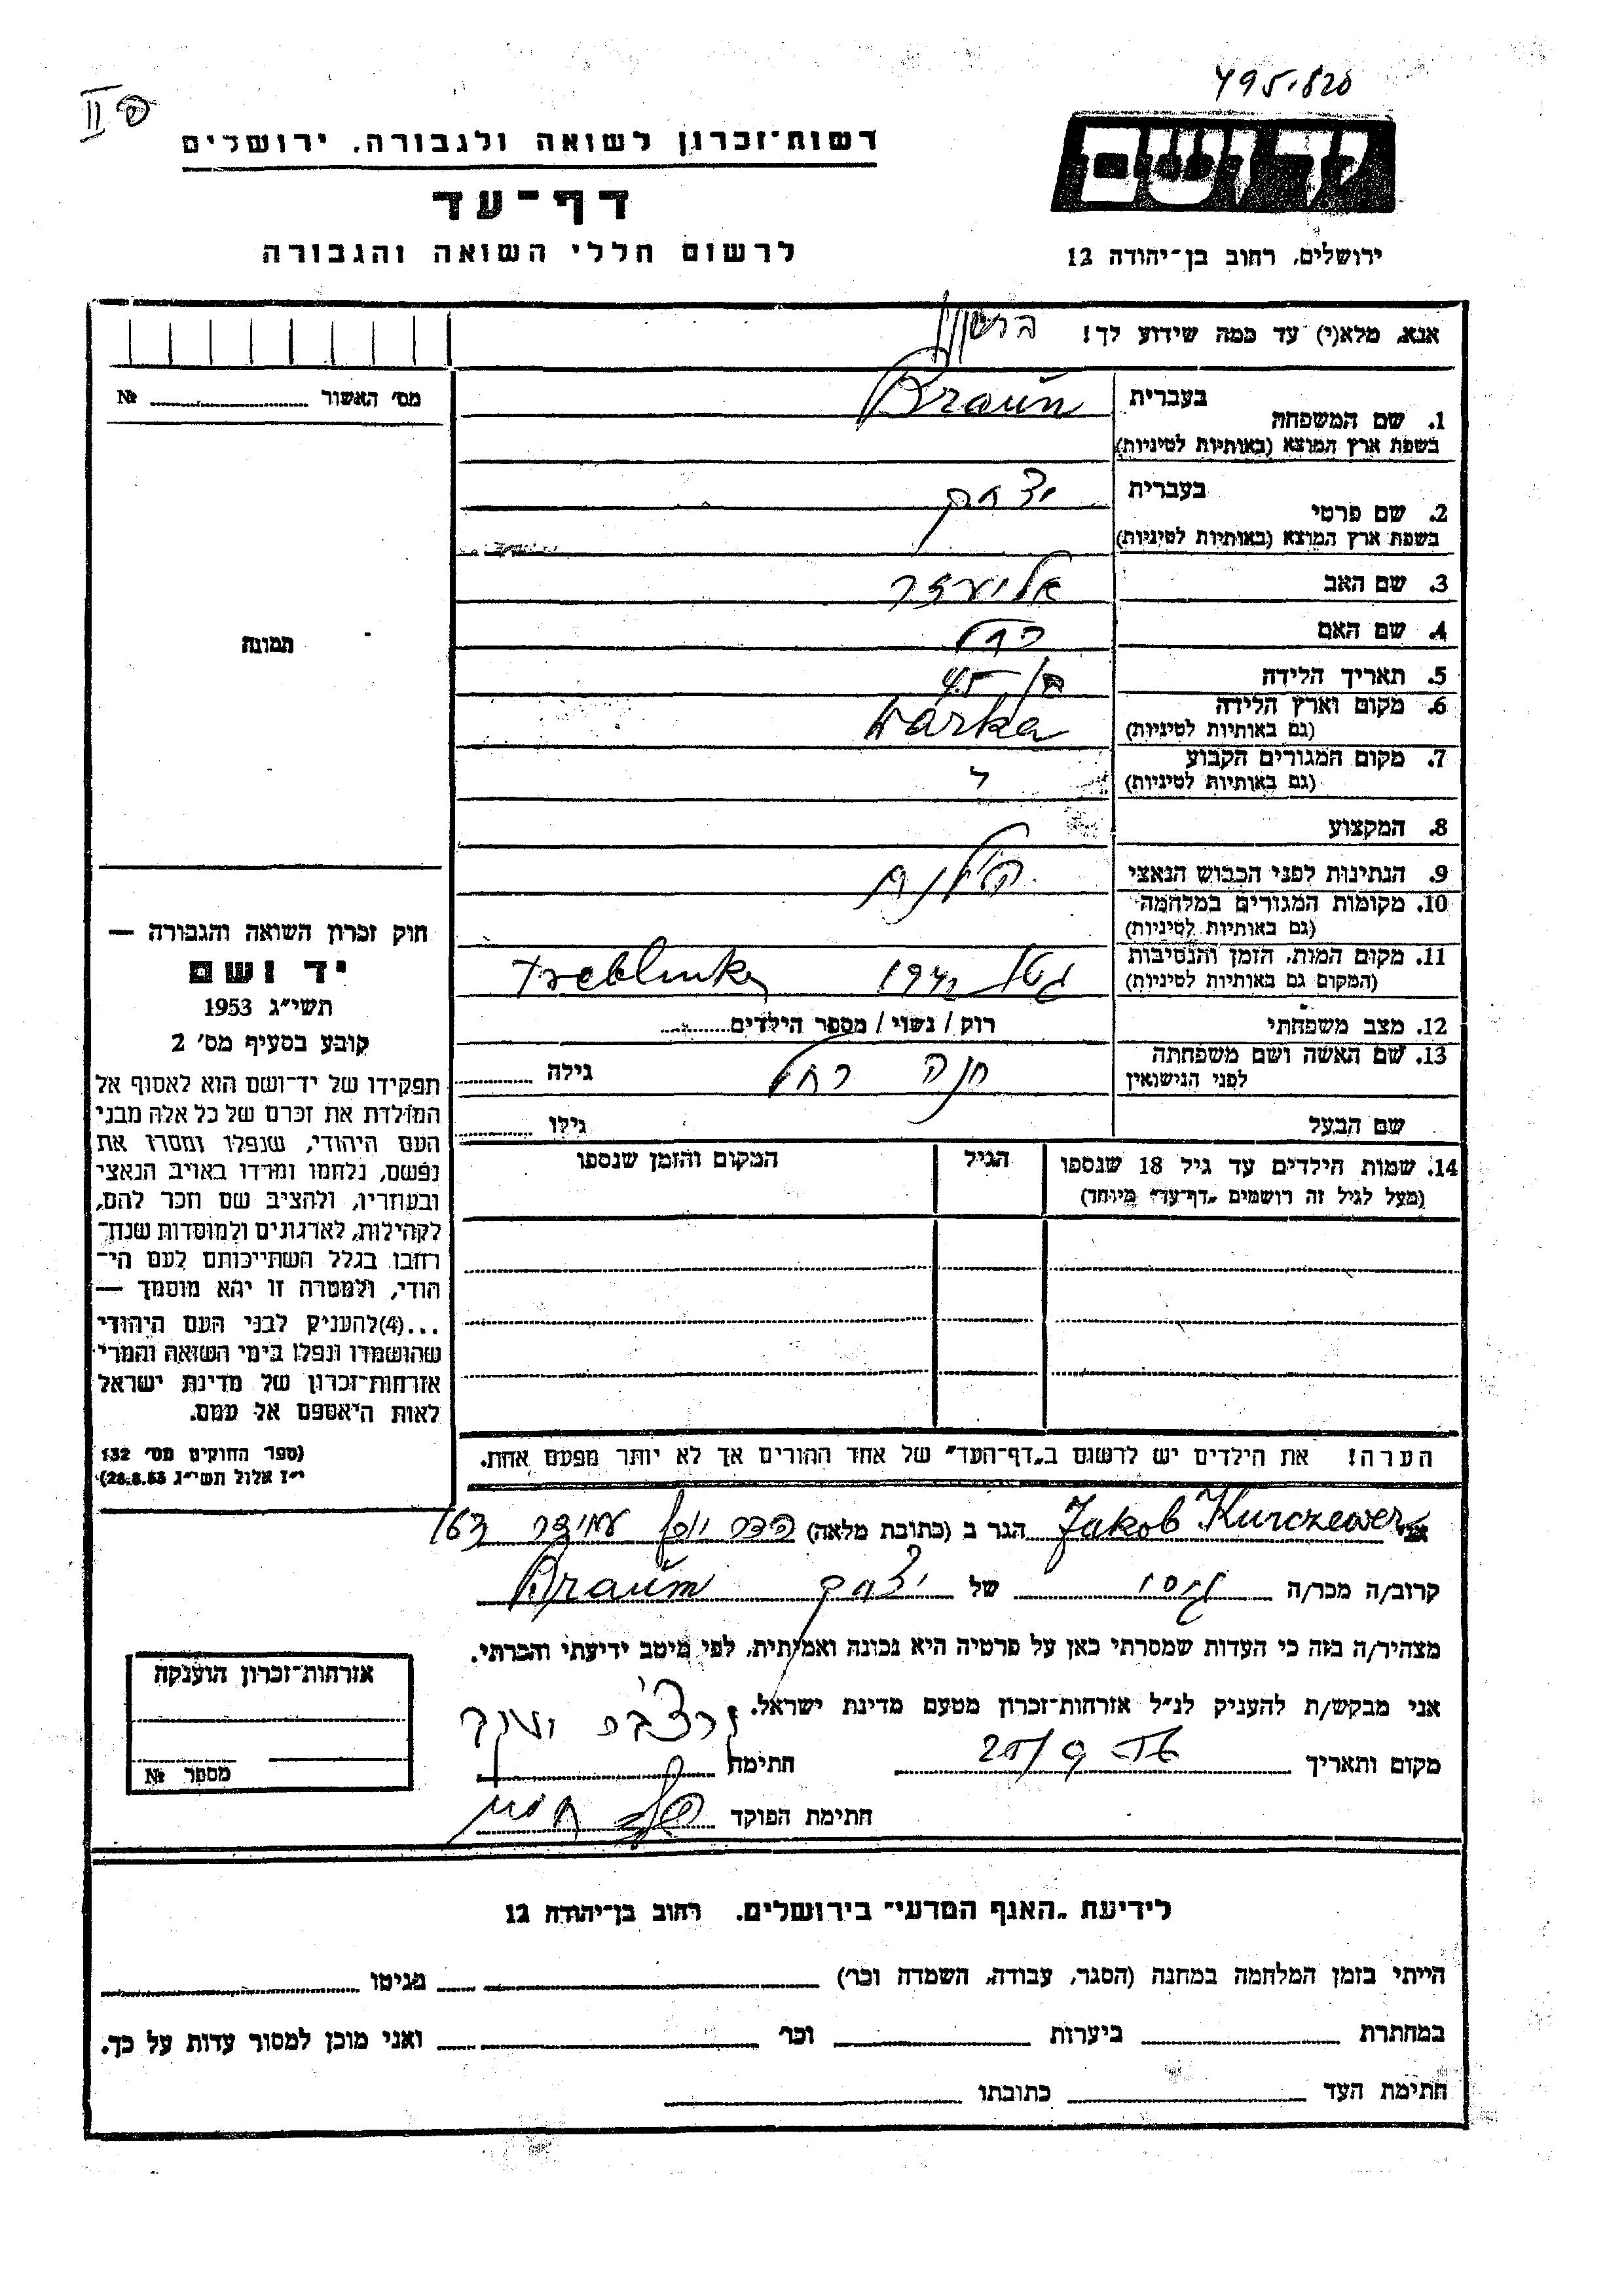 495.820
פ II
יד ושם
רשות־זכרון לשואה ולגבורה, ירושלים
דף־עד
לרשום חללי השואה והגבורה
ירושלים, רחוב בן־יהודה 12
אנא, מלא(י) עד כמה שידוע לך!
בעברית
1. שם המשפחה Braun
בשפת ארץ המוצא (באותיות לטיניות)
בעברית יצחק
2. שם פרטי
בשפת ארץ המוצא (באותיות לטיניות)
3. שם האב אליעזר
4. שם האם רחל
5. תאריך הלידה בן 45
6. מקום וארץ הלידה Warka
(גם באותיות לטיניות)
7. מקום המגורים הקבוע
(גם באותיות לטיניות)
8. המקצוע
9. הנתינות לפני הכבוש הנאצי
10. מקומות המגורים במלחמה
(גם באותיות לטיניות)
11. מקום המות, הזמן והנסיבות 1942 Treblinka
(המקום גם באותיות לטיניות)
12. מצב משפחתי רוק / נשוי / מספר הילדים
13. שם האשה ושם משפחתה חנה רחל גילה
לפני הנישואין
שם הבעל גילו
14. שמות הילדים עד גיל 18 שנספו הגיל המקום והזמן שנספו
(מעל לגיל זה רושמים „דף־עד" מיוחד)
הערה! את הילדים יש לרשום ב„דף־העד" של אחד ההורים אך לא יותר מפעם אחת.
מס' האשור №
תמונה
חוק זכרון השואה והגבורה —
יד ושם
תשי"ג 1953
קובע בסעיף מס' 2
תפקידו של יד־ושם הוא לאסוף אל
המולדת את זכרם של כל אלה מבני
העם היהודי, שנפלו ומסרו את
נפשם, נלחמו ומרדו באויב הנאצי
ובעוזריו, ולהציב שם וזכר להם,
לקהילות, לארגונים ולמוסדות שנח־
רבו בגלל השתייכותם לעם הי־
הודי, ולמטרה זו יהא מוסמך —
...(4)להעניק לבני העם היהודי
שהושמדו ונפלו בימי השואה והמרי
אזרחות־זכרון של מדינת ישראל
לאות היאספם אל עמם.
(ספר החוקים מס' 132
י"ז אלול תשי"ג 28.8.53)
אני Jakob Kurczewer הגר ב (כתובת מלאה)
קרוב/ה מכר/ה גיסו של יצחק Braun
מצהיר/ה בזה כי העדות שמסרתי כאן על פרטיה היא נכונה ואמיתית, לפי מיטב ידיעתי והכרתי.
אני מבקש/ת להעניק לנ"ל אזרחות־זכרון מטעם מדינת ישראל.
מקום ותאריך חתימה
חתימת הפוקד
אזרחות־זכרון הוענקה
מספר №
לידיעת „האגף המדעי" בירושלים. רחוב בן־יהודה 12
הייתי בזמן המלחמה במחנה (הסגר, עבודה, השמדה וכו') בגיטו
במחתרת ביערות וכו' ואני מוכן למסור עדות על כך.
חתימת העד כתובתו